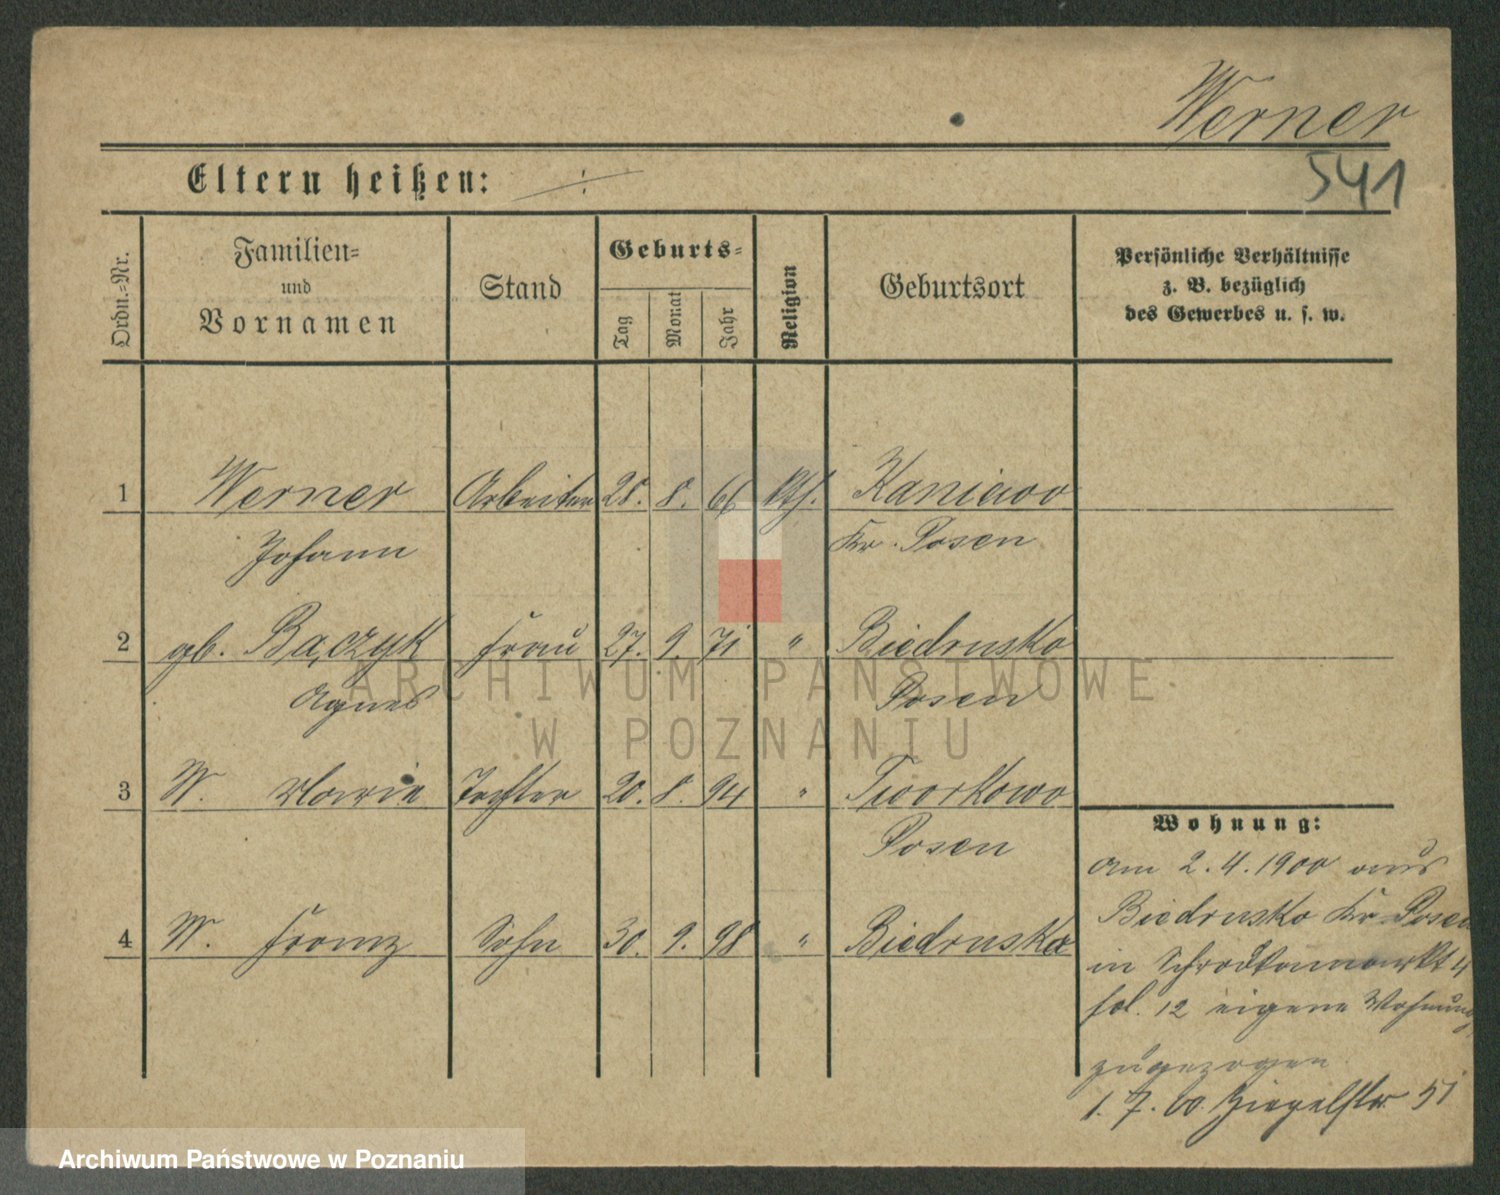 Werner
541
Eltern heißen: ./.
Ordn.-Nr.
Familien-
und
Vornamen
Stand
Geburts-
Tag
Monat
Jahr
Religion
Geburtsort
Persönliche Verhältnisse
z. B. bezüglich
des Gewerbes u. s. w.
1 Werner Arbeiter 28. 8. 66 kth. Kaniewo
Johann Kr. Posen
2 gb. Bączyk Frau 27. 9. 71 " Biedrusko
Agnes Posen
3 W. Marie Tochter 20. 8. 94 " Tworkowo
Posen
4 W. Franz Sohn 30. 9. 98 " Biedrusko
Wohnung:
am 2.4.1900 aus
Biedrusko Kr. Posen
in Schrodkamarkt 4
fol. 12 eigene Wohnung
zugezogen
1. 7. 00. Ziegelstr.
ARCHIWUM PAŃSTWOWE
W POZNANIU
Archiwum Państwowe w Poznaniu